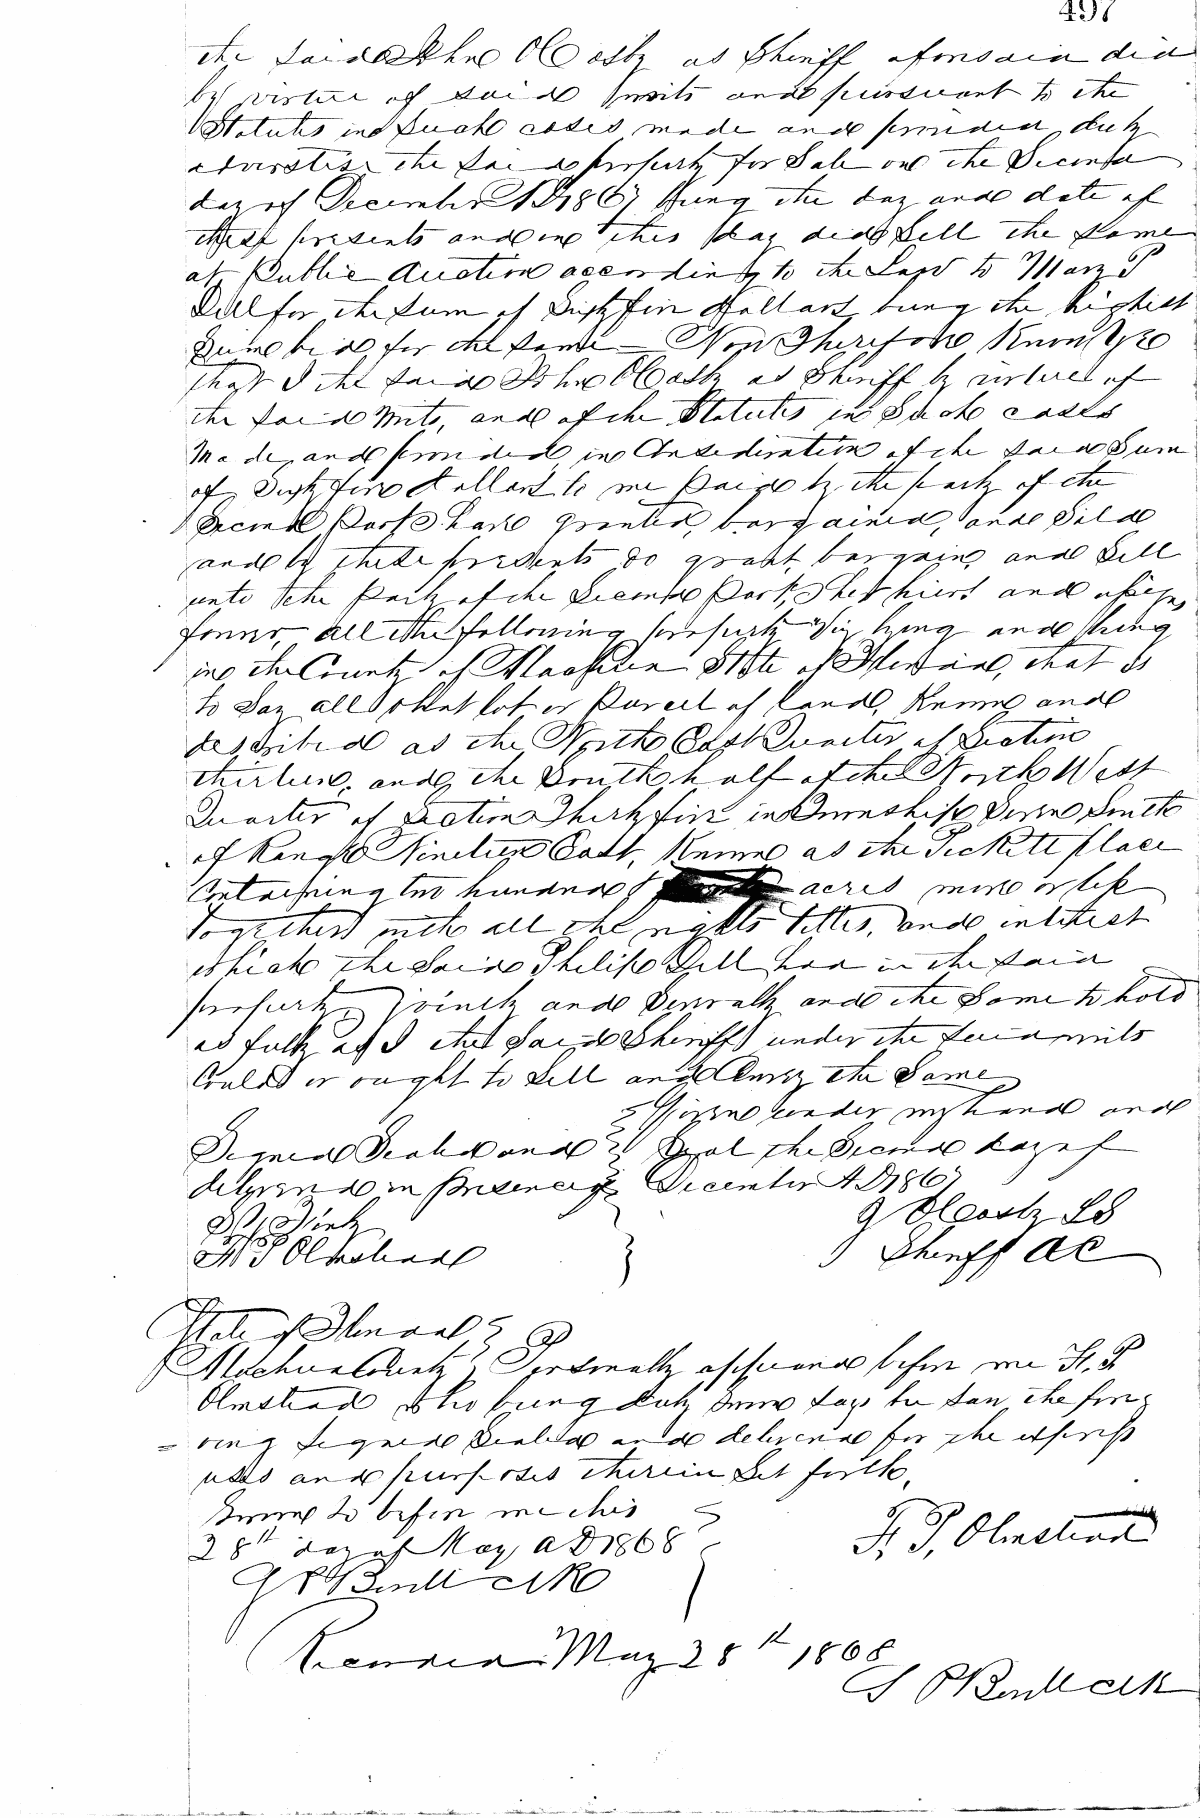 497
the said John C Cosby as Sheriff aforesaid did
by virtue of said writs and pursuant to the
Statutes in Such cases made and provided, duly
advertise the said property for Sale on the Second
day of December AD 1867 being the day and date of
these presents and on this day did Sell the same
at Public Auction according to the Law to Mary P
Dell for the sum of Sixty five dollars being the highest
bid for the same — Now Therefore Know Ye
that I the said John C Cosby as Sheriff by virtue of
the said writs, and of the Statutes in Such cases
Made, and provided in Consideration of the said Sum
of Sixty five dollars to me Paid by the party of the
Second Part, have granted, bargained, and Sold
and by these presents do grant, bargain, and Sell
unto the Party of the Second Part, her heirs and assigns,
forever, all the following property Viz lying and being
in the County of Alachua State of Florida, that is
to Say all that lot or Parcel of land, Known and
described as the North East Quarter of Section
thirteen, and the South half of the North West
Quarter of Section Thirty five in Township Seven South
of Range Nineteen East, Known as the Pickett place
Containing two hundred & acres more or less
together with all the rights titles, and interest
which the Said Philip Dell had in the said
property, jointly and Severally and the Same to hold
as fully as I the Said Sheriff under the said writs
Could or ought to Sell and Convey the Same
Given under my hand and
Signed Sealed and Seal the Second day of
delivered in presence of December AD 1867
J C Cosby LS
F. P. Olmstead Sheriff AC
State of Florida
Alachua County Personally appeared before me F. P.
Olmstead who being duly Sworn Says he saw the fore
= going Signed Sealed and delivered for the express
uses and purposes therein Set forth.
Sworn to before me this
28th day of May AD 1868 F. P. Olmstead
Clk
Recorded May 28th 1868
Clk